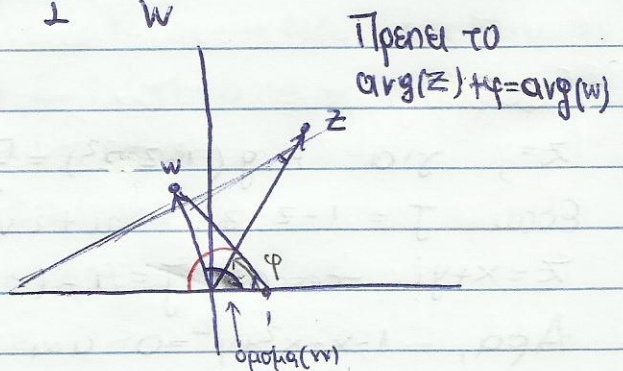 1 W
Πρεπει το
arg(z)+φ=arg(w)
z
w
φ
1
ορισμα(w)